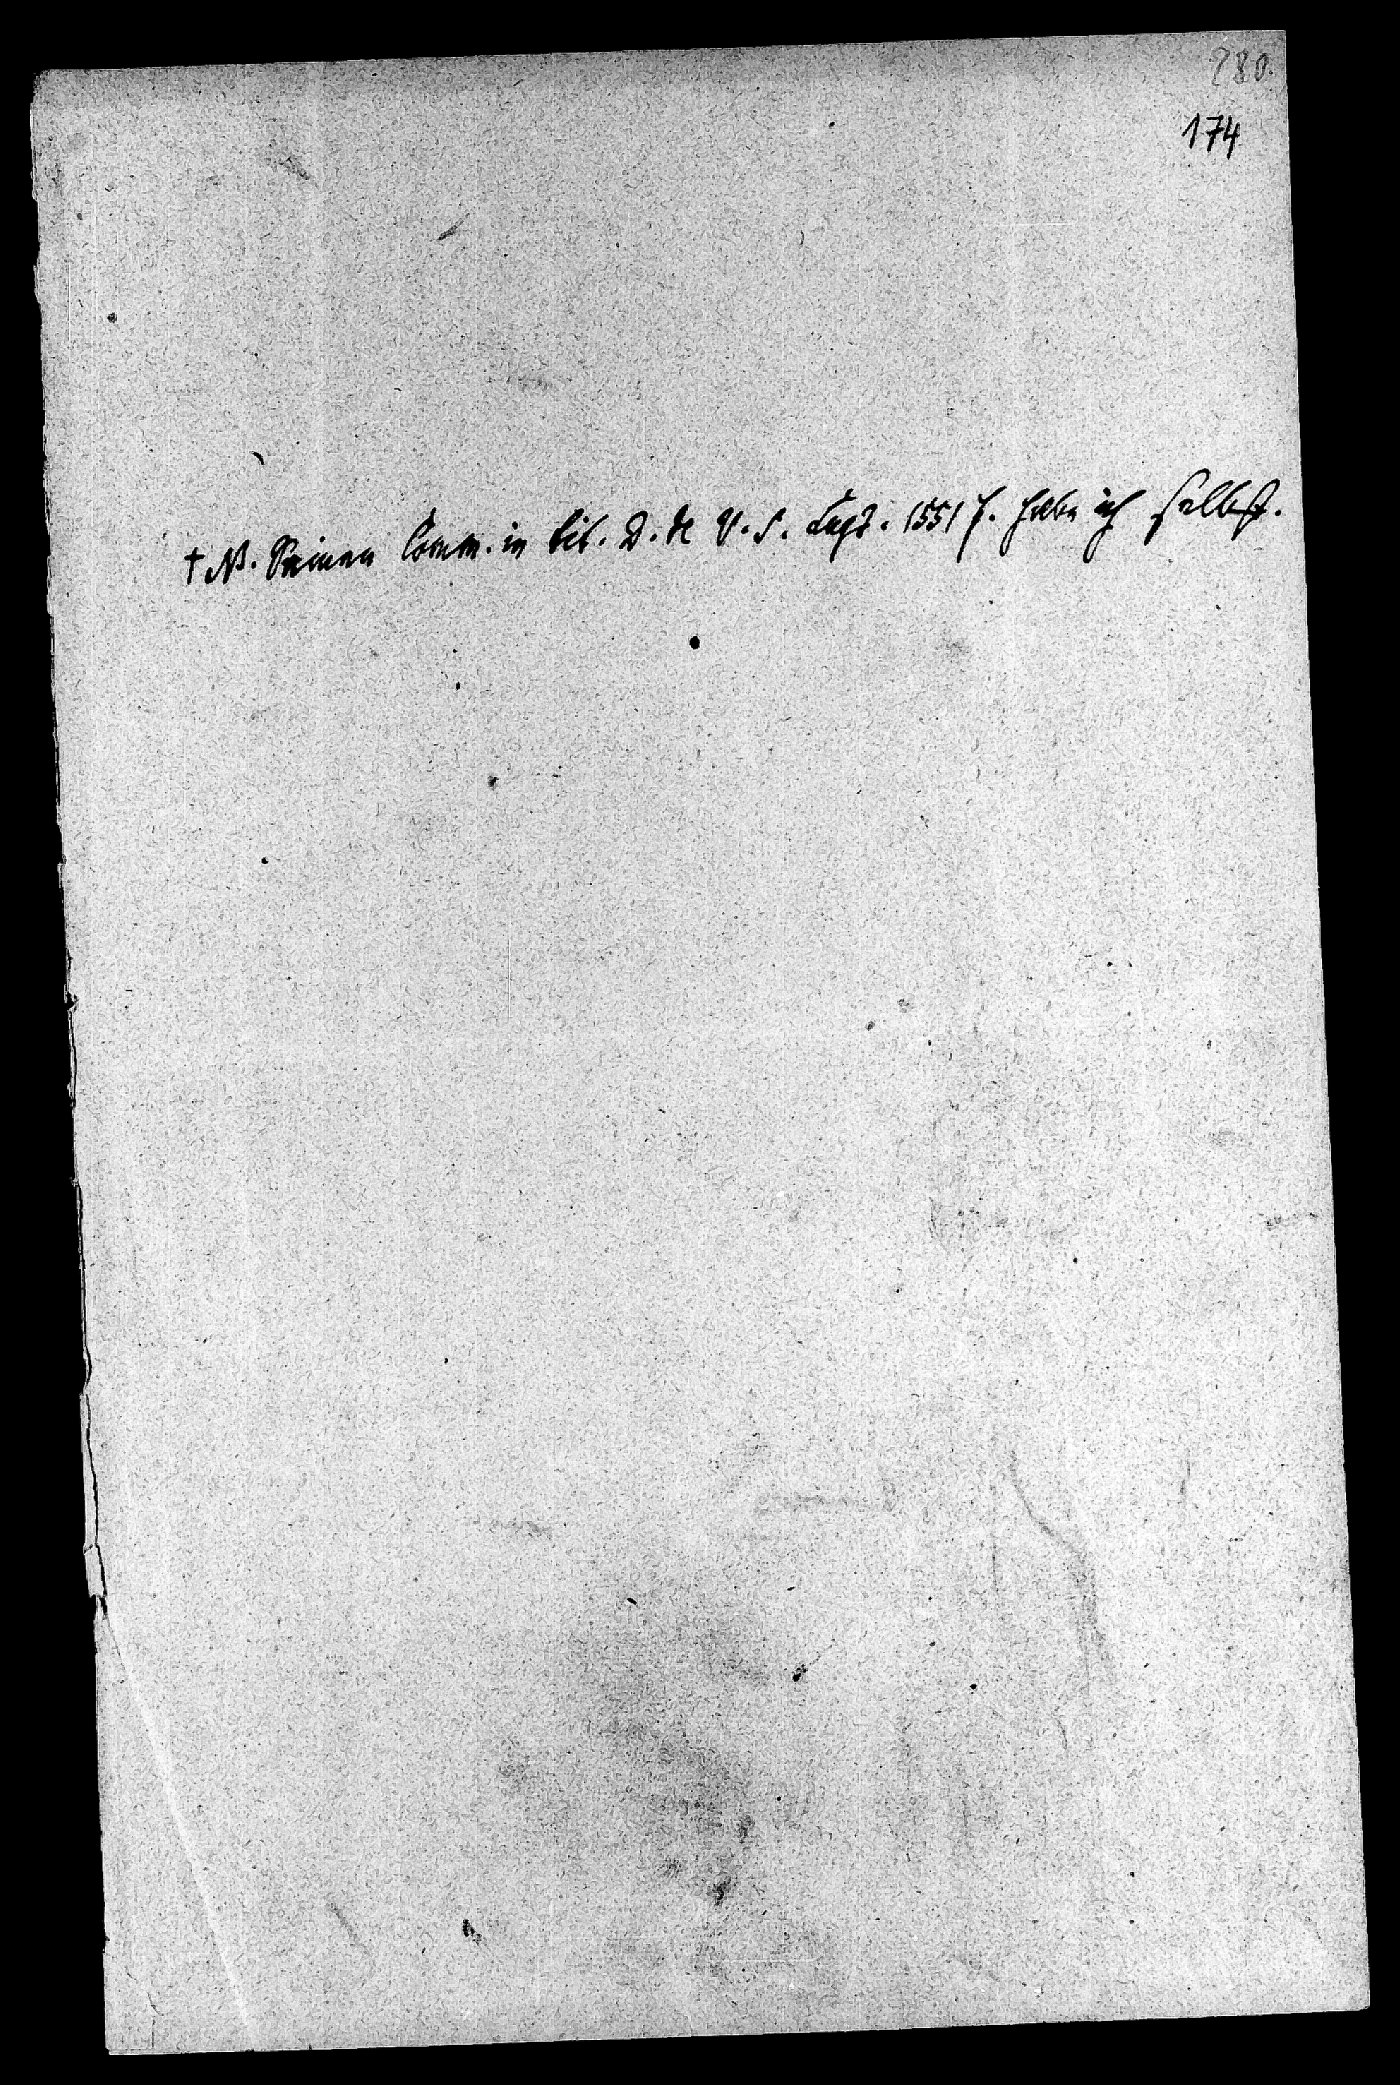 280.
174
† NB. Seinen Comm. in tit. D. de V. S. Lugd. 1551 f. habe ich selbst.